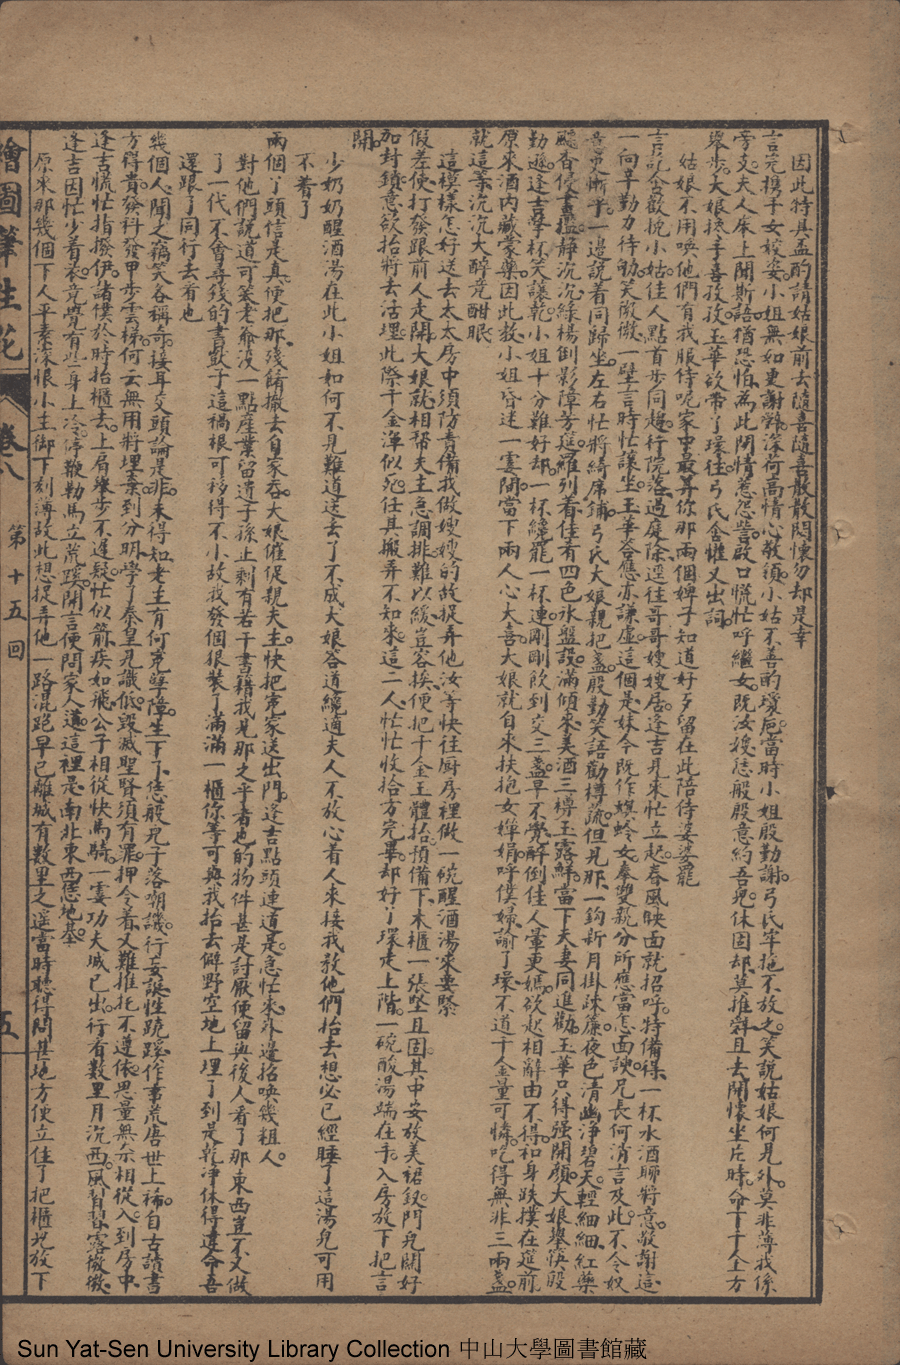 因此特具盃酌請姑娘前去隨喜隨喜散散悶懷勿却是幸
言完携手女姣姿小姐無如更謝辤深何高情心敬須小姑不善酌瓊巵當時小姐殷勤謝弓氏牢拖不放之笑說姑娘何見外莫非薄我係
旁支夫人床上聞斯語猶恐怕為此閉情惹怨訾啟口慌忙呼繼女既汝嫂恁般殷意約吾兒休固却莫推辤且去開懷坐片時命丫千金方
舉步大娘挽手喜孜孜玉華欲帶了環往弓氏含懽又出詞
姑娘不用喚他們有我服侍呢家中最算你那兩個婢子知道好歹留在此陪侍婆婆罷
言訖含歡挽小姑佳人點首步同趨行院落過庭除逕往哥哥嫂嫂居逢吉見來忙立起春風映面就招呼特備得一杯水酒聊將意敬謝這
一向辛勤力待劬笑微微一壁言時忙讓坐玉華答應亦謙虛這個是妹今既作螟蛉女奉雙親分所應當怎面諛兄長何消言及此不令奴
意更慚乎一邊說着同歸坐左右忙將綺席鋪弓氏大娘親把盞殷勤笑語勸樽蔬但見那一鈎新月掛踈簾夜色清幽浄碧天輕細細紅藥
飄香侵書檻靜沉沉綠楊倒影障芳筵羅列着佳肴四色氷盤設滿傾來美酒三樽玉露鮮當下夫妻同進勸玉華只得强開顏大娘舉筷殷
勤遜逢吉擎杯笑讓乾小姐十分難好却一杯纔罷一杯連剛剛飲到交三盞早不覺醉倒佳人暈更媽欲起相辭由不得和身跌撲在筵前
原來酒内藏蒙藥因此教小姐昏迷一霎間當下兩人心大喜大娘就自來扶抱女嬋娟呼僕婦諭了環不道千金量可憐吃得無非三兩盞
就這等沉沉大醉竟酣眠
這模樣怎好送去太太房中須防責備我做嫂嫂的故捉弄他汝等快往厨房裡做一碗醒酒湯來要緊
假差使打發跟前人走開大娘就相帮夫主急調排難以緩豈容挨便把千金玉體抬預備下木櫃一張堅且固其中安放美裙釵門兒關好
加封鎖意欲抬將去活埋此際千金渾似死任其搬弄不知來這二人忙忙收拾方完畢却好丫環走上階一碗酸湯端在手入房放下把言
開
少奶奶醒酒湯在此小姐如何不見難道送去了不成大娘答道纔適夫人不放心着人來接我教他們抬去想必已經睡了這湯兒可用
不着了
兩個了頭信是真便把那殘餚撤去自家吞大娘催促親夫主快把棺家送出門逢吉點頭連道是急忙來外邊招喚幾粗人
對他們說道可笑老爺沒一點產業留遺子孫止剩有若干書籍我見那之乎者也的物件甚是討厭便留與後人看了那東西豈不又做
了一代不會尋錢的書獃子這禍根可移得不小故我發個狠裝了滿滿一櫃你等可與我抬去僻野空地上埋了到是乾净休得違命吾
還跟了同行去看也
幾個人聞之竊笑各稱奇接耳交頭論是非未得知老主有何寃孽障生下了恁般兒子落嘲譏行妄誕性蹺蹊作事荒唐世上稀自古讀書
方得貴發科發甲步雲梯何云無用將埋棄到分明學了秦皇見識低毀滅聖賢須有罪押令着又難推托不遵依思量無奈相從入到房中
逢吉慌忙指撥伊諸僕於時抬櫃去上肩舉步不遲疑忙似箭疾如飛公子相從快馬騎一霎功夫城已出行有數里月沉西風習習露微微
逢吉因忙少着衣竟覺有些身上冷停鞭勒馬立荒蹊開言便問家人道這裡是南北東西恁地基
原來那幾個下人平素深恨小主御下刻薄故此想捉弄他一路混跑早已離城有數里之遥當時聽得問甚地方便立住了把櫃兒放下
繪圖筆生花
卷八
第十五回
五
Sun Yat-Sen University Library Collection 中山大學圖書館藏